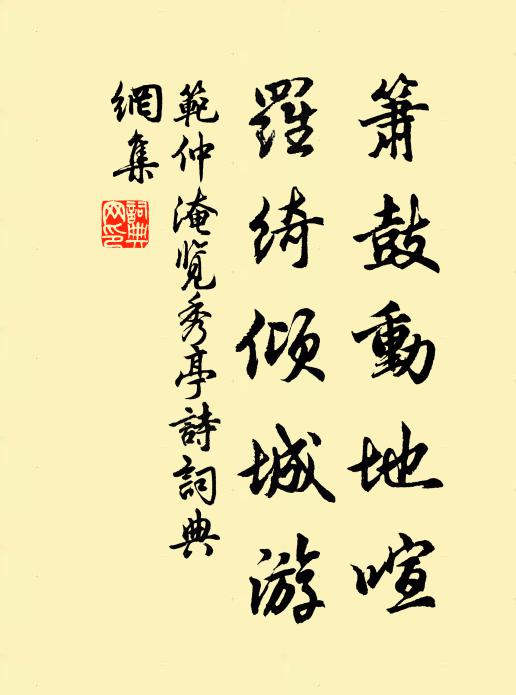 簫鼓動地喧
羅綺傾城游
範仲淹覽秀亭詩詞典
網集
詞典
网印